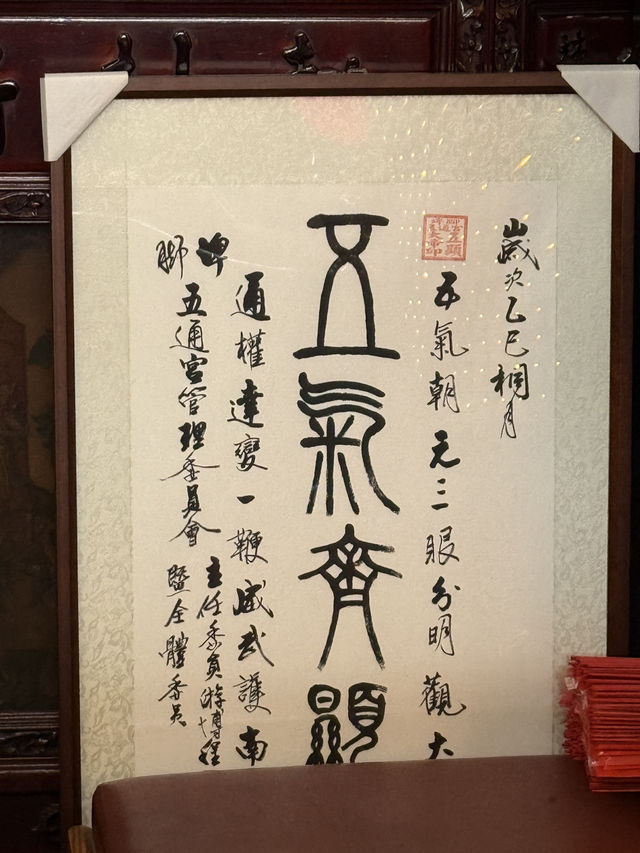 歲次乙巳桐月
五氣朝元三眼分明觀大
五氣齊顯
通權達變一鞭威武護南
埤腳
五通宮管理委員會
主任委員游博程
暨全體委員